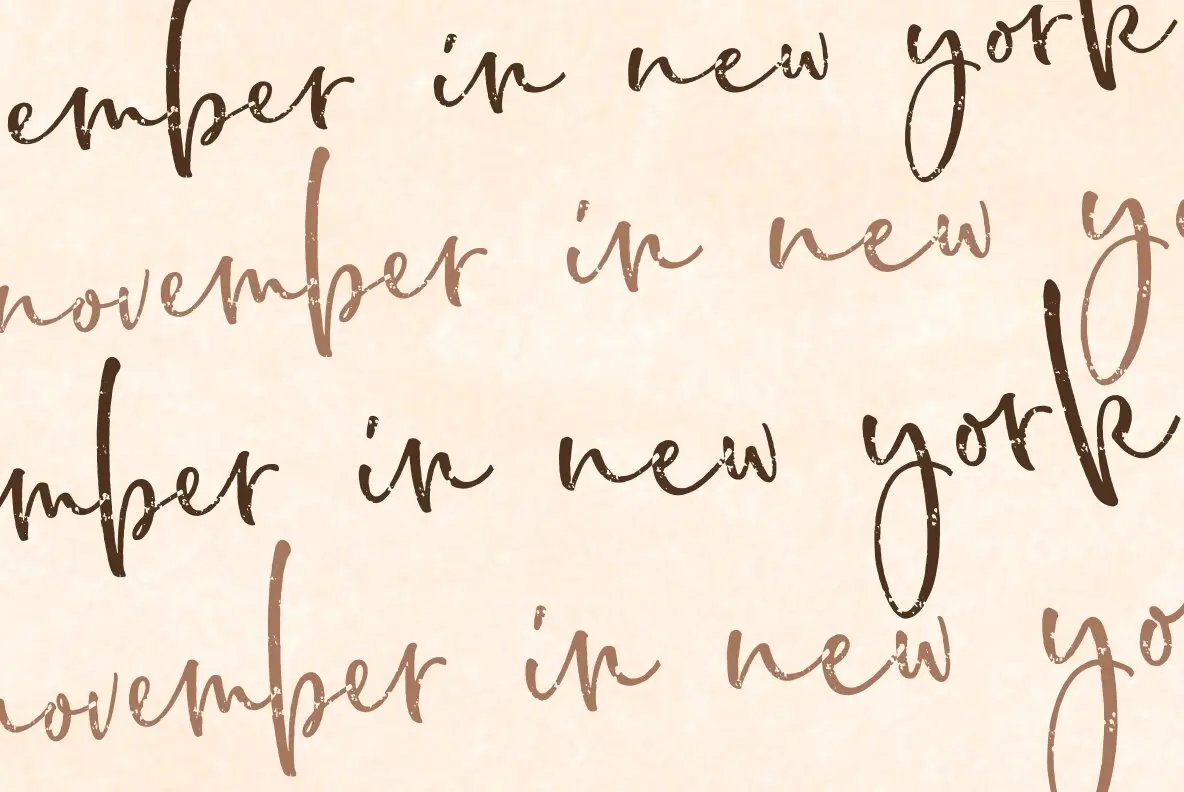 ember in new york
november in new yo
mber in new york
november in new yo